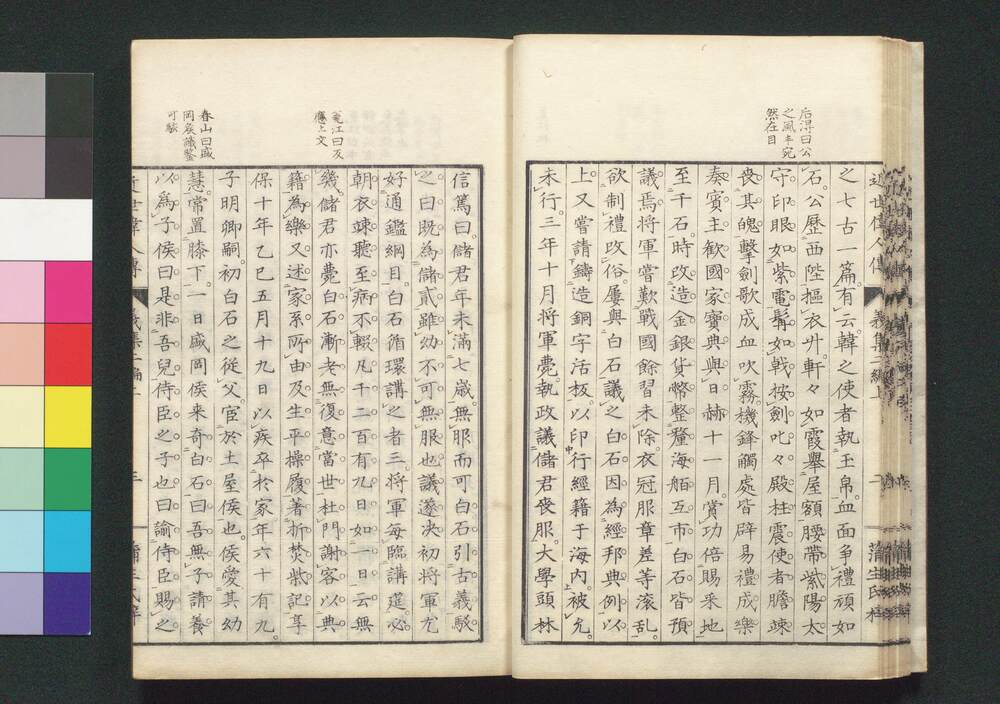 后淂曰公
之風丰宛
然在目
之七古一篇有云韓之使者執玉帛血面争禮頑如
石公歷西陛摳衣升軒々如霞舉屋額腰帶紫陽太
守印眼如紫電髯如戟按劍叱々殿柱震使者膽竦
喪其魄擊劍歌成血吹霧機鋒觸處皆辟易禮成樂
奏賓主歡國家寶典與日赫十一月賞功倍賜采地
至千石時改造金銀貨幣整釐海舶互市白石皆預
議焉將軍嘗歎戰國餘習未除衣冠服章差等滚乱
欲制禮改俗屢與白石議之白石因為經邦典例以
上又嘗請鑄造銅字活板以印行經籍于海内被允
未行三年十月將軍薨執政議儲君喪服大學頭林
信篤曰儲君年未滿七歲無服而可白石引古義駁
之曰既為儲貳雖幼不可無服也議遂決初將軍尤
好通鑑綱目白石循環講之者三將軍每臨講筵必
朝衣竦聽至病不輟凡千二百有九日如一日云無
幾儲君亦薨白石漸老無復意當世杜門謝客以典
籍為樂又述家系所由及生平操履著折焚柴記享
保十年乙巳五月十九日以疾卒於家年六十有九
子明卿嗣初白石之從父宦於土屋侯也侯愛其幼
慧常置膝下一日盛岡侯来奇白石曰吾無子請養
以為子侯曰是非吾兒侍臣之子也曰諭侍臣賜之
寛江曰反
應上文
春山曰盛
岡矦識鑒
可駭
近世偉人傳
義集二編上
二
蒲生氏梓